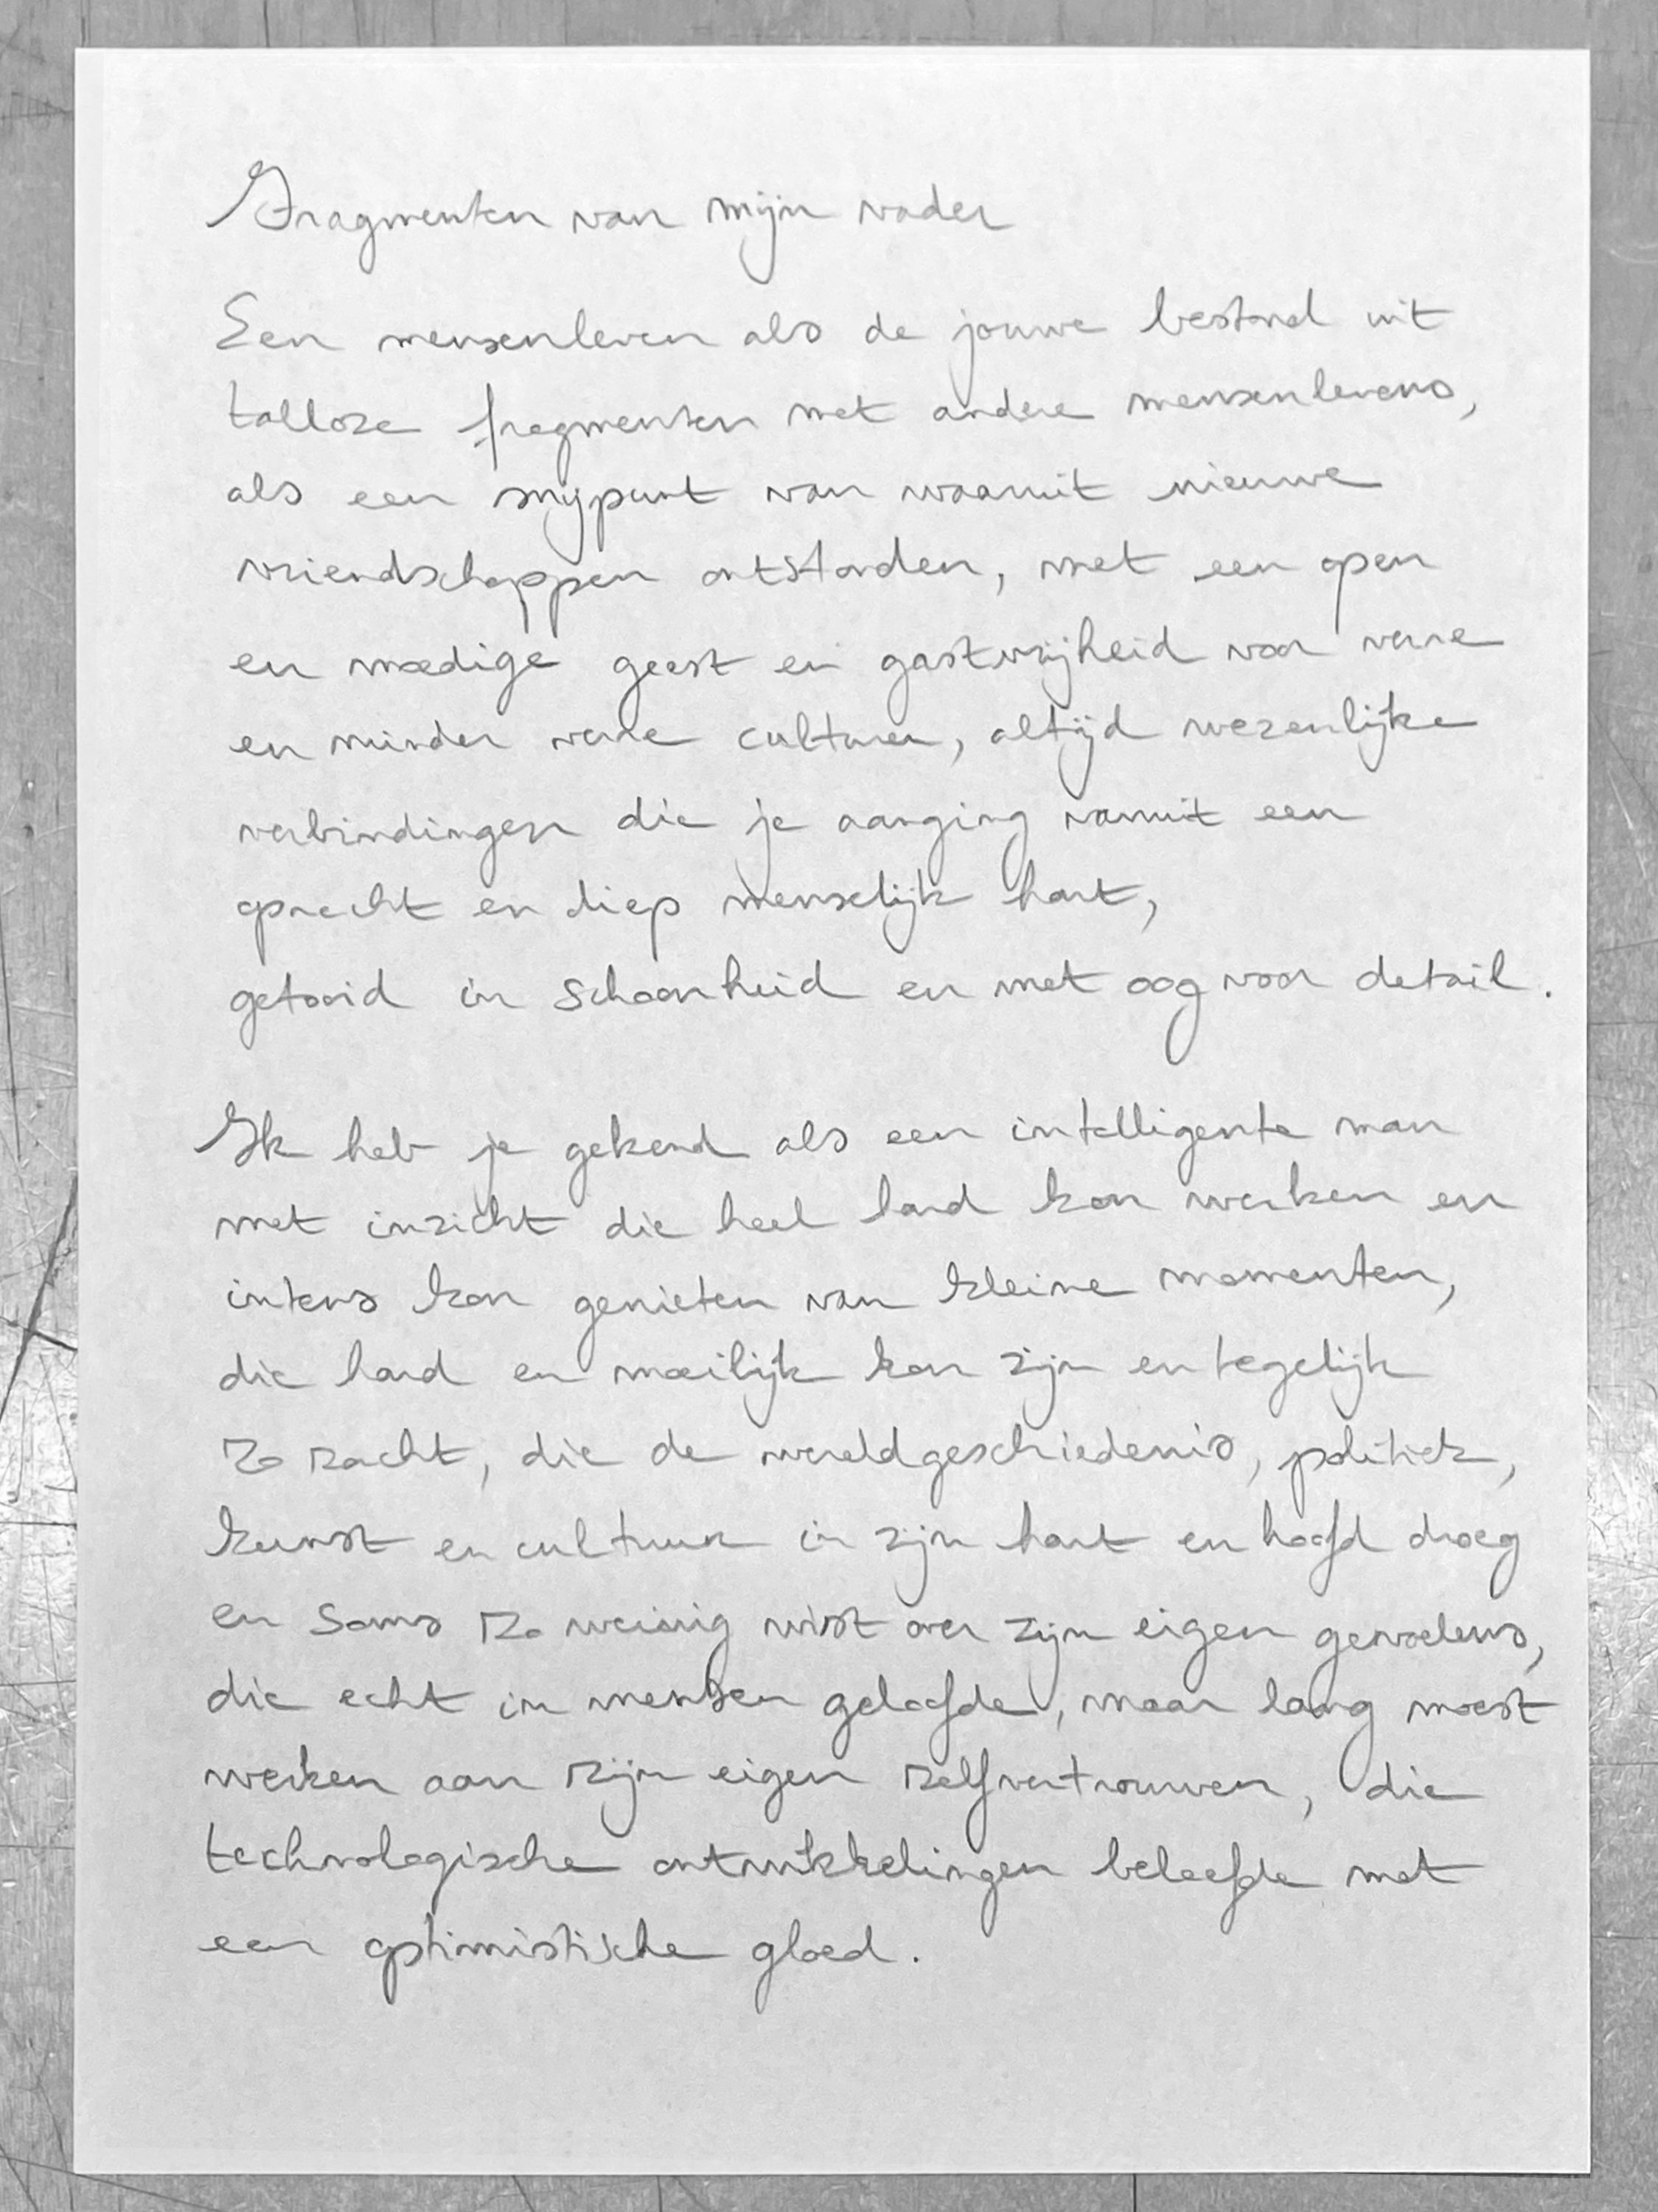 Fragmenten van mijn vader
Een mensenleven als de jouwe bestond uit
talloze fragmenten met andere mensenlevens,
als een snijpunt van waaruit nieuwe
vriendschappen ontstonden, met een open
en moedige geest en gastvrijheid voor verre
en minder verre culturen, altijd wezenlijke
verbindingen die je aanging vanuit een
oprecht en diep menselijk hart,
getooid in schoonheid en met oog voor detail.
Ik heb je gekend als een intelligente man
met inzicht die heel hard kon werken en
intens kon genieten van kleine momenten,
die hard en moeilijk kon zijn en tegelijk
zo zacht, die de wereldgeschiedenis, politiek,
kunst en cultuur in zijn hart en hoofd droeg
en soms zo weinig wist over zijn eigen gevoelens,
die echt in mensen geloofde, maar lang moest
werken aan zijn eigen zelfvertrouwen, die
technologische ontwikkelingen beleefde met
een optimistische gloed.